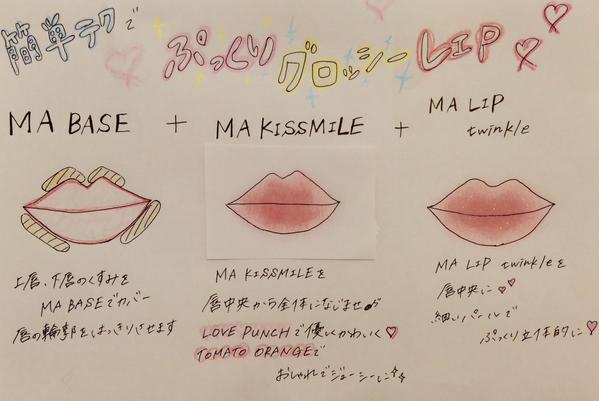 簡単テクで
ぷっくりグロッシーLIP
MA BASE + MA KISSMILE + MA LIP
twinkle
上唇、下唇のくすみを
MA BASEでカバー
唇の輪郭をはっきりさせます
MA KISSMILEを
唇中央から全体になじませ♪
LOVE PUNCHで優しくかわいく♡
TOMATO ORANGEで
おしゃれでジューシーに
MA LIP twinkleを
唇中央に♥♥
細いパールで
ぷっくり立体的に♡